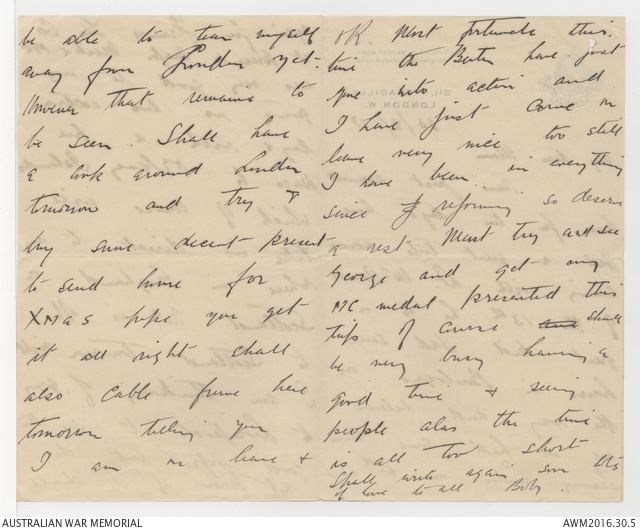 be able to tear myself
away from London yet.
However that remains to
be seen. Shall have
a look around London
tomorrow and try &
buy some decent present
to send home for
XMas hope you get
it all right shall
also cable from here
tomorrow telling you
I am on leave &
OK. Most fortunate this
time the Battn have just
gone into action and
I have just come on
leave very nice too still
I have been in everything
since reforming so deserve
a rest. Must try and see
George and get my
MC medal presented this
trip of course shall
be very busy having a
good time & seeing
people alas the time
is all too short
Shall write again soon lots
of love to all Bob.
PICCADILLY
LONDON W.
AUSTRALIAN WAR MEMORIAL
AWM2016.30.5